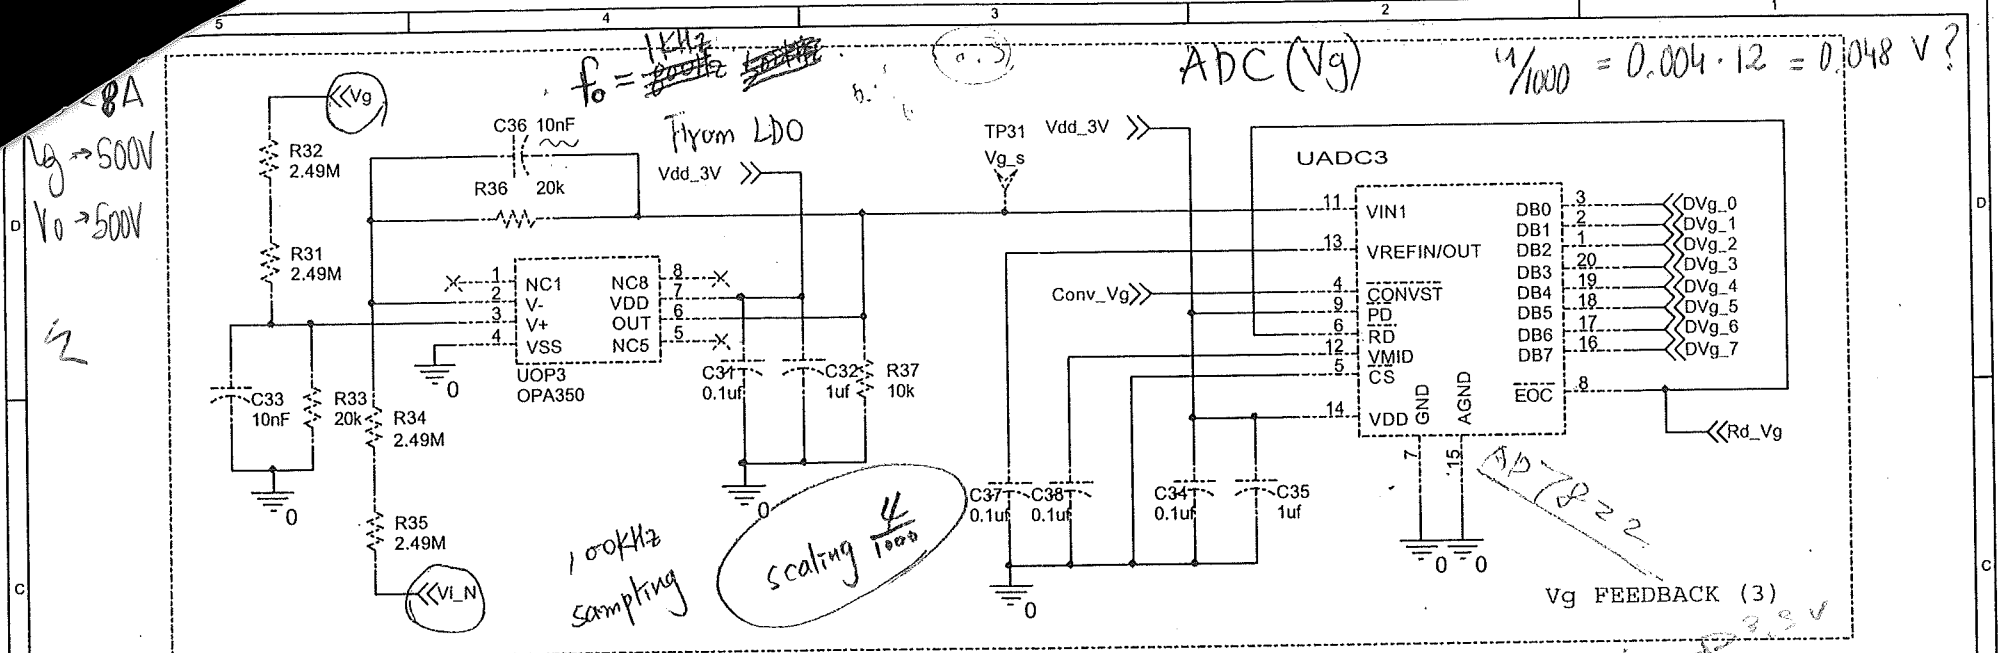 5 4 3 2 1
1KHz
f₀ = 800Hz
ADC (Vg)
4/1000 = 0.004 · 12 = 0.048 V ?
<8A
Vg → 500V
Vo → 500V
D
D
C
C
Vg
R32
2.49M
R31
2.49M
C36 10nF
R36 20k
From LDO
Vdd_3V
TP31
Vg_s
Vdd_3V
UADC3
1 NC1
2 V-
3 V+
4 VSS
NC8 8
VDD 7
OUT 6
NC5 5
UOP3
OPA350
0
C33
10nF
R33
20k
0
R34
2.49M
R35
2.49M
VI_N
C31
0.1uf
C32
1uf
R37
10k
0
100KHz
sampling
scaling 4/1000
Conv_Vg
11 VIN1
13 VREFIN/OUT
4 CONVST
9 PD
6 RD
12 VMID
5 CS
14 VDD
GND 7
AGND 15
DB0 3 DVg_0
DB1 2 DVg_1
DB2 1 DVg_2
DB3 20 DVg_3
DB4 19 DVg_4
DB5 18 DVg_5
DB6 17 DVg_6
DB7 16 DVg_7
EOC 8
Rd_Vg
C37
0.1uf
C38
0.1uf
C34
0.1uf
C35
1uf
0
0 0
AD7822
Vg FEEDBACK (3)
3.3 V